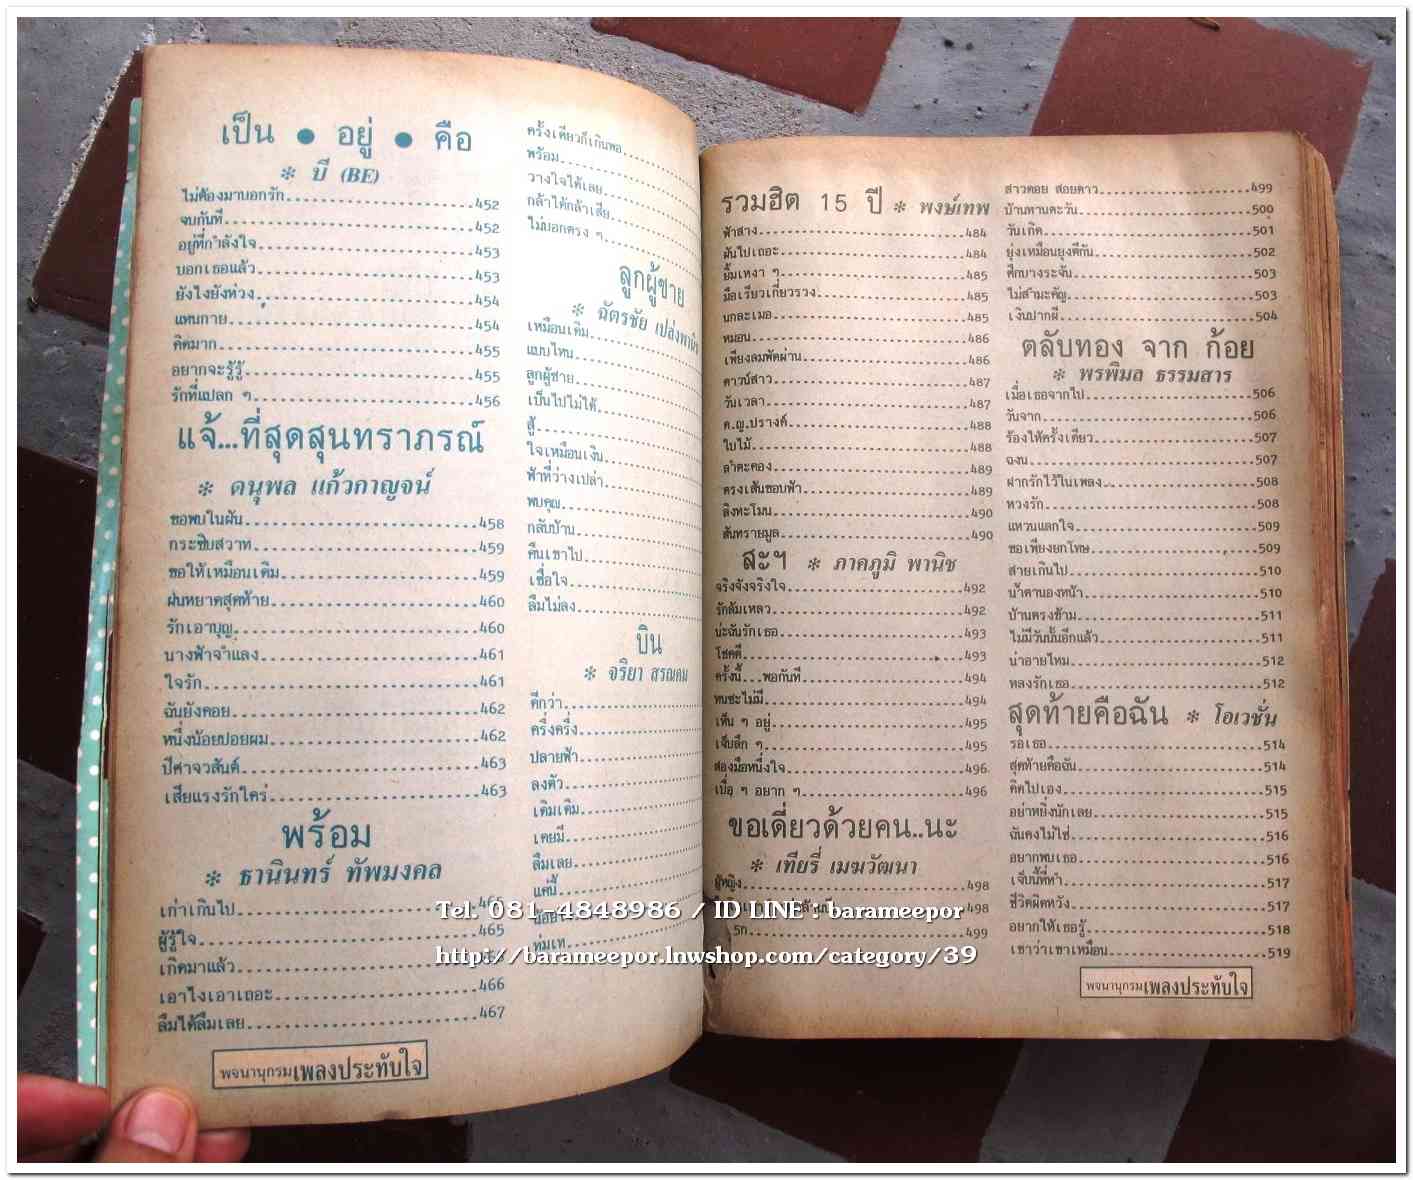 เป็น ● อยู่ ● คือ
✻ บี (BE)
ไม่ต้องมาบอกรัก 452
จบกันที 452
อยู่ที่กำลังใจ 453
บอกเธอแล้ว 453
ยังไงยังห่วง 454
แทนกาย 454
คิดมาก 455
อยากจะรู้รู้ 455
รักที่แปลก ๆ 456
แจ้...ที่สุดสุนทราภรณ์
✻ ดนุพล แก้วกาญจน์
ขอพบในฝัน 458
กระซิบสวาท 459
ขอให้เหมือนเดิม 459
ฝนหยาดสุดท้าย 460
รักเอาบุญ 460
นางฟ้าจำแลง 461
ใจรัก 461
ฉันยังคอย 462
หนึ่งน้อยปอยผม 462
ปีศาจวสันต์ 463
เสียแรงรักใคร่ 463
พร้อม
✻ ธานินทร์ ทัพมงคล
เก่าเกินไป
ผู้รู้ใจ 465
เกิดมาแล้ว
เอาไงเอาเถอะ 466
ลืมได้ลืมเลย 467
พจนานุกรมเพลงประทับใจ
ครั้งเดียวก็เกินพอ
พร้อม
วางใจได้เลย
กล้าได้กล้าเสีย
ไม่บอกตรง ๆ
ลูกผู้ชาย
✻ ฉัตรชัย เปล่งพานิช
เหมือนเดิม
แบบไหน
ลูกผู้ชาย
เป็นไปไม่ได้
สู้
ใจเหมือนเงิน
ฟ้าที่ว่างเปล่า
พบคุณ
กลับบ้าน
คืนเขาไป
เชื่อใจ
ลืมไม่ลง
บิน
✻ จริยา สรณคม
ดีกว่า
ครึ่งครึ่ง
ปลายฟ้า
ลงตัว
เดิมเดิม
เคยมี
ลืมเลย
แค่นี้
ทุ่มเท
รวมฮิต 15 ปี ✻ พงษ์เทพ
ฟ้าสาง 484
ฝันไปเถอะ 484
ยิ้มเหงา ๆ 485
มือเรียวเกี่ยวรวง 485
นกละเมอ 485
หมอน 486
เพียงลมพัดผ่าน 486
ดาวน์สาว 487
วันเวลา 487
ด.ญ.ปรางค์ 488
ใบไม้ 488
ลำตะคอง 489
ตรงเส้นขอบฟ้า 489
ลิงทะโมน 490
สันทรายมูล 490
สะฯ ✻ ภาคภูมิ พานิช
จริงจังจริงใจ 492
รักล้มเหลว 492
น่ะฉันรักเธอ 493
โชคดี 493
ครั้งนี้...พอกันที 494
ทนซะไม่มี 494
เห็น ๆ อยู่ 495
เจ็บลึก ๆ 495
สองมือหนึ่งใจ 496
เบื่อ ๆ อยาก ๆ 496
ขอเดี่ยวด้วยคน..นะ
✻ เทียรี่ เมฆวัฒนา
ผู้หญิง 498
498
รัก 499
สาวดอย สอยดาว 499
บ้านทานตะวัน 500
วันเกิด 501
ยุ่งเหมือนยุงตีกัน 502
ศึกบางระจัน 503
ไม่สำมะคัญ 503
เงินปากผี 504
ตลับทอง จาก ก้อย
✻ พรพิมล ธรรมสาร
เมื่อเธอจากไป 506
วันจาก 506
ร้องไห้ครั้งเดียว 507
ฉงน 507
ฝากรักไว้ในเพลง 508
หวงรัก 508
แหวนแลกใจ 509
ขอเพียงยกโทษ 509
สายเกินไป 510
น้ำตานองหน้า 510
บ้านตรงข้าม 511
ไม่มีวันนั้นอีกแล้ว 511
น่าอายไหม 512
หลงรักเธอ 512
สุดท้ายคือฉัน ✻ โอเวชั่น
รอเธอ 514
สุดท้ายคือฉัน 514
คิดไปเอง 515
อย่าหยิ่งนักเลย 515
ฉันคงไม่ใช่ 516
อยากพบเธอ 516
เจ็บนี้ที่ทำ 517
ชีวิตผิดหวัง 517
อยากให้เธอรู้ 518
เขาว่าเขาเหมือน 519
พจนานุกรมเพลงประทับใจ
Tel. 081-4848986 / ID LINE : barameepor
http://barameepor.lnwshop.com/category/39